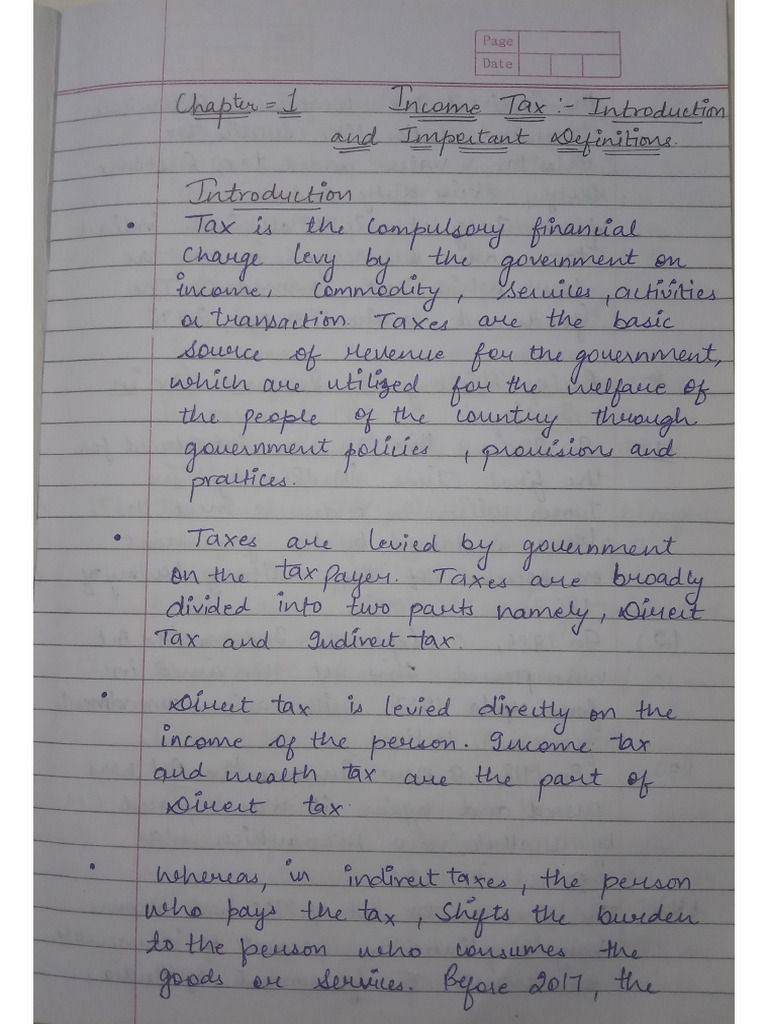 Page
Date
Chapter = 1 Income Tax :- Introduction
and Important Definitions.
Introduction
• Tax is the compulsory financial
charge levy by the government on
income, commodity, services, activities
or transaction. Taxes are the basic
source of revenue for the government,
which are utilized for the welfare of
the people of the country through
government policies, provisions and
practices.
• Taxes are levied by government
on the tax payer. Taxes are broadly
divided into two parts namely, Direct
Tax and Indirect tax.
• Direct tax is levied directly on the
income of the person. Income tax
and wealth tax are the part of
Direct tax.
• Whereas, in indirect taxes, the person
who pays the tax, shifts the burden
to the person who consumes the
goods or services. Before 2017, the